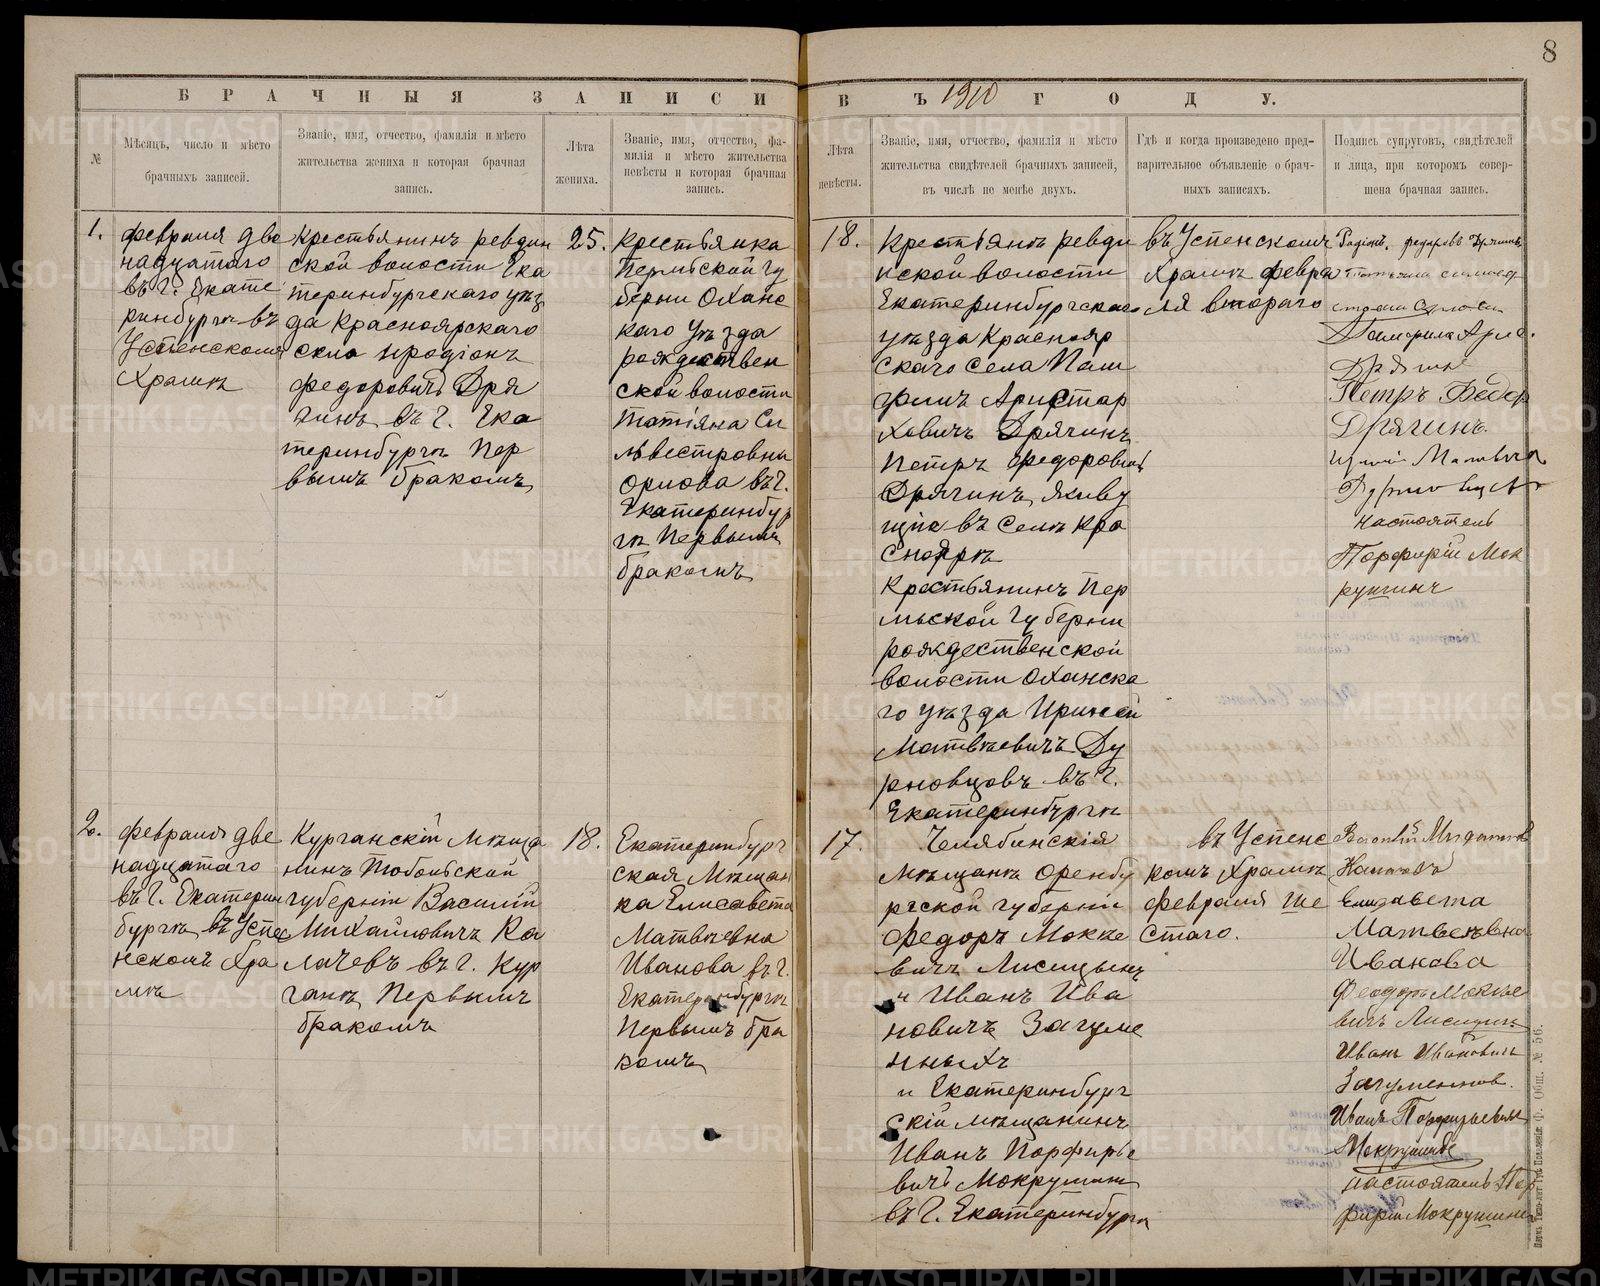 8
БРАЧНЫЯ ЗАПИСИ ВЪ 1910 ГОДУ.
№
Мѣсяцъ, число и мѣсто
брачныхъ записей.
Званіе, имя, отчество, фамилія и мѣсто
жительства жениха и которая брачная
запись.
Лѣта
жениха.
Званіе, имя, отчество, фа-
милія и мѣсто жительства
невѣсты и которая брачная
запись.
Лѣта
невѣсты.
Званіе, имя, отчество, фамилія и мѣсто
жительства свидѣтелей брачныхъ записей,
въ числѣ не менѣе двухъ.
Гдѣ и когда произведено пред-
варительное объявленіе о брач-
ныхъ записяхъ.
Подпись супруговъ, свидѣтелей
и лица, при которомъ совер-
шена брачная запись.
1.
февраля две
надцатаго
въ г. Екате
ринбургѣ въ
Успенскомъ
Храмѣ
Крестьянинъ ревдин
ской волости Ека
теринбургскаго уѣз
да Красноярскаго
села Иродіонъ
федоровичъ Дря
гинъ въ г. Ека
теринбургѣ Пер
вымъ бракомъ
25.
крестьянка
Пермской гу
берни Оханс
каго уѣзда
рождествен
ской волости
татіяна Си
львестровна
орлова въ г.
Екатеринбур
гѣ Первымъ
бракомъ
18.
Крестьянъ ревди
нской волости
Екатеринбургскаго
уѣзда Краснояр
скаго села Пам
филъ Аристар
ховичъ Дрягинъ
Петръ федоровичъ
Дрягинъ живу
щіе въ селѣ Кра
снояркѣ
Крестьянинъ Пер
мьской губерни
рождественской
волости Оханска
го уѣзда Ириней
Матвѣевичъ Ду
рновцовъ въ г.
Екатеринбургѣ
въ Успенскомъ
Храмѣ февра
ля второго
Петръ Федор
Дрягинъ
настоятель
Порфирій Мок
рушинъ
2.
февраля две
надцатаго
въ г. Екатерин
бургѣ въ Успе
нскомъ Хра
мѣ
Курганскій мѣща
нинъ Тобольской
губерніи Василій
Михайловичъ Ка
лачевъ въ г. Кур
ганѣ Первымъ
бракомъ
18.
Екатеринбург
ская Мѣщан
ка Елисавета
Матвѣевна
Иванова въ г.
Екатеринбургѣ
Первымъ бра
комъ
17.
Челябинскія
мѣщанѣ Оренбу
ргской губерніи
Федоръ Мокіе
вичъ Лисицынъ
и Иванъ Ива
новичъ Загуме
нныхъ
и Екатеринбург
скій мѣщанинъ
Иванъ Порфирье
вичъ Мокрушин
въ г. Екатеринбургѣ
въ Успенс
комъ Храмѣ
февраля Ше
стаго.
Елизавета
Матвеевна
Иванова
Феодоръ Мокіе
вичъ Лисицынъ
Иванъ Ивановичъ
Загуменнов.
Иванъ Порфирьевичъ
Мокрушинъ
настоятель Пор
фирій Мокрушинъ